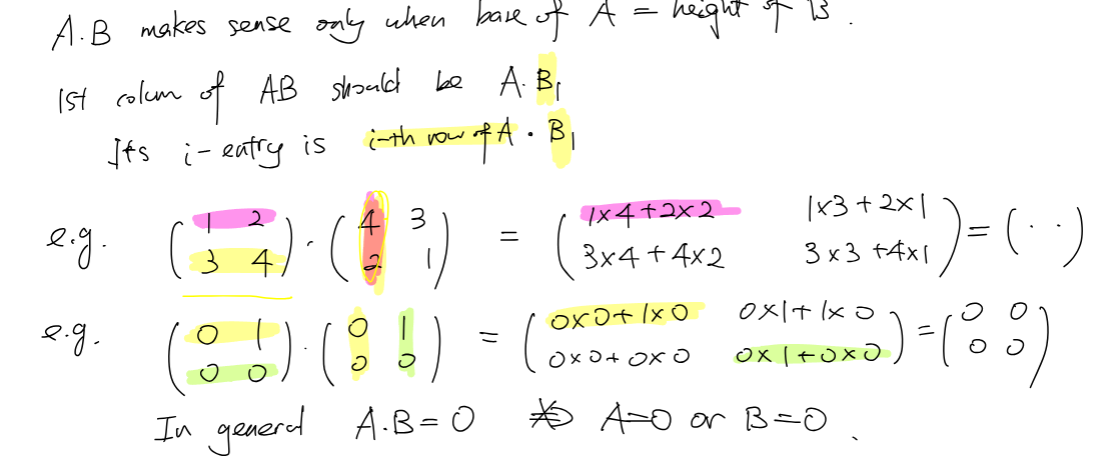 A.B makes sense only when base of A = height of B.
1st colum of AB should be A.B₁
Its i-entry is i-th row of A · B₁
e.g. (1 2 / 3 4) · (4 3 / 2 1) = (1×4+2×2 1×3+2×1 / 3×4+4×2 3×3+4×1) = (··)
e.g. (0 1 / 0 0) · (0 1 / 0 0) = (0×0+1×0 0×1+1×0 / 0×0+0×0 0×1+0×0) = (0 0 / 0 0)
In general A.B=0 ⇏ A=0 or B=0.